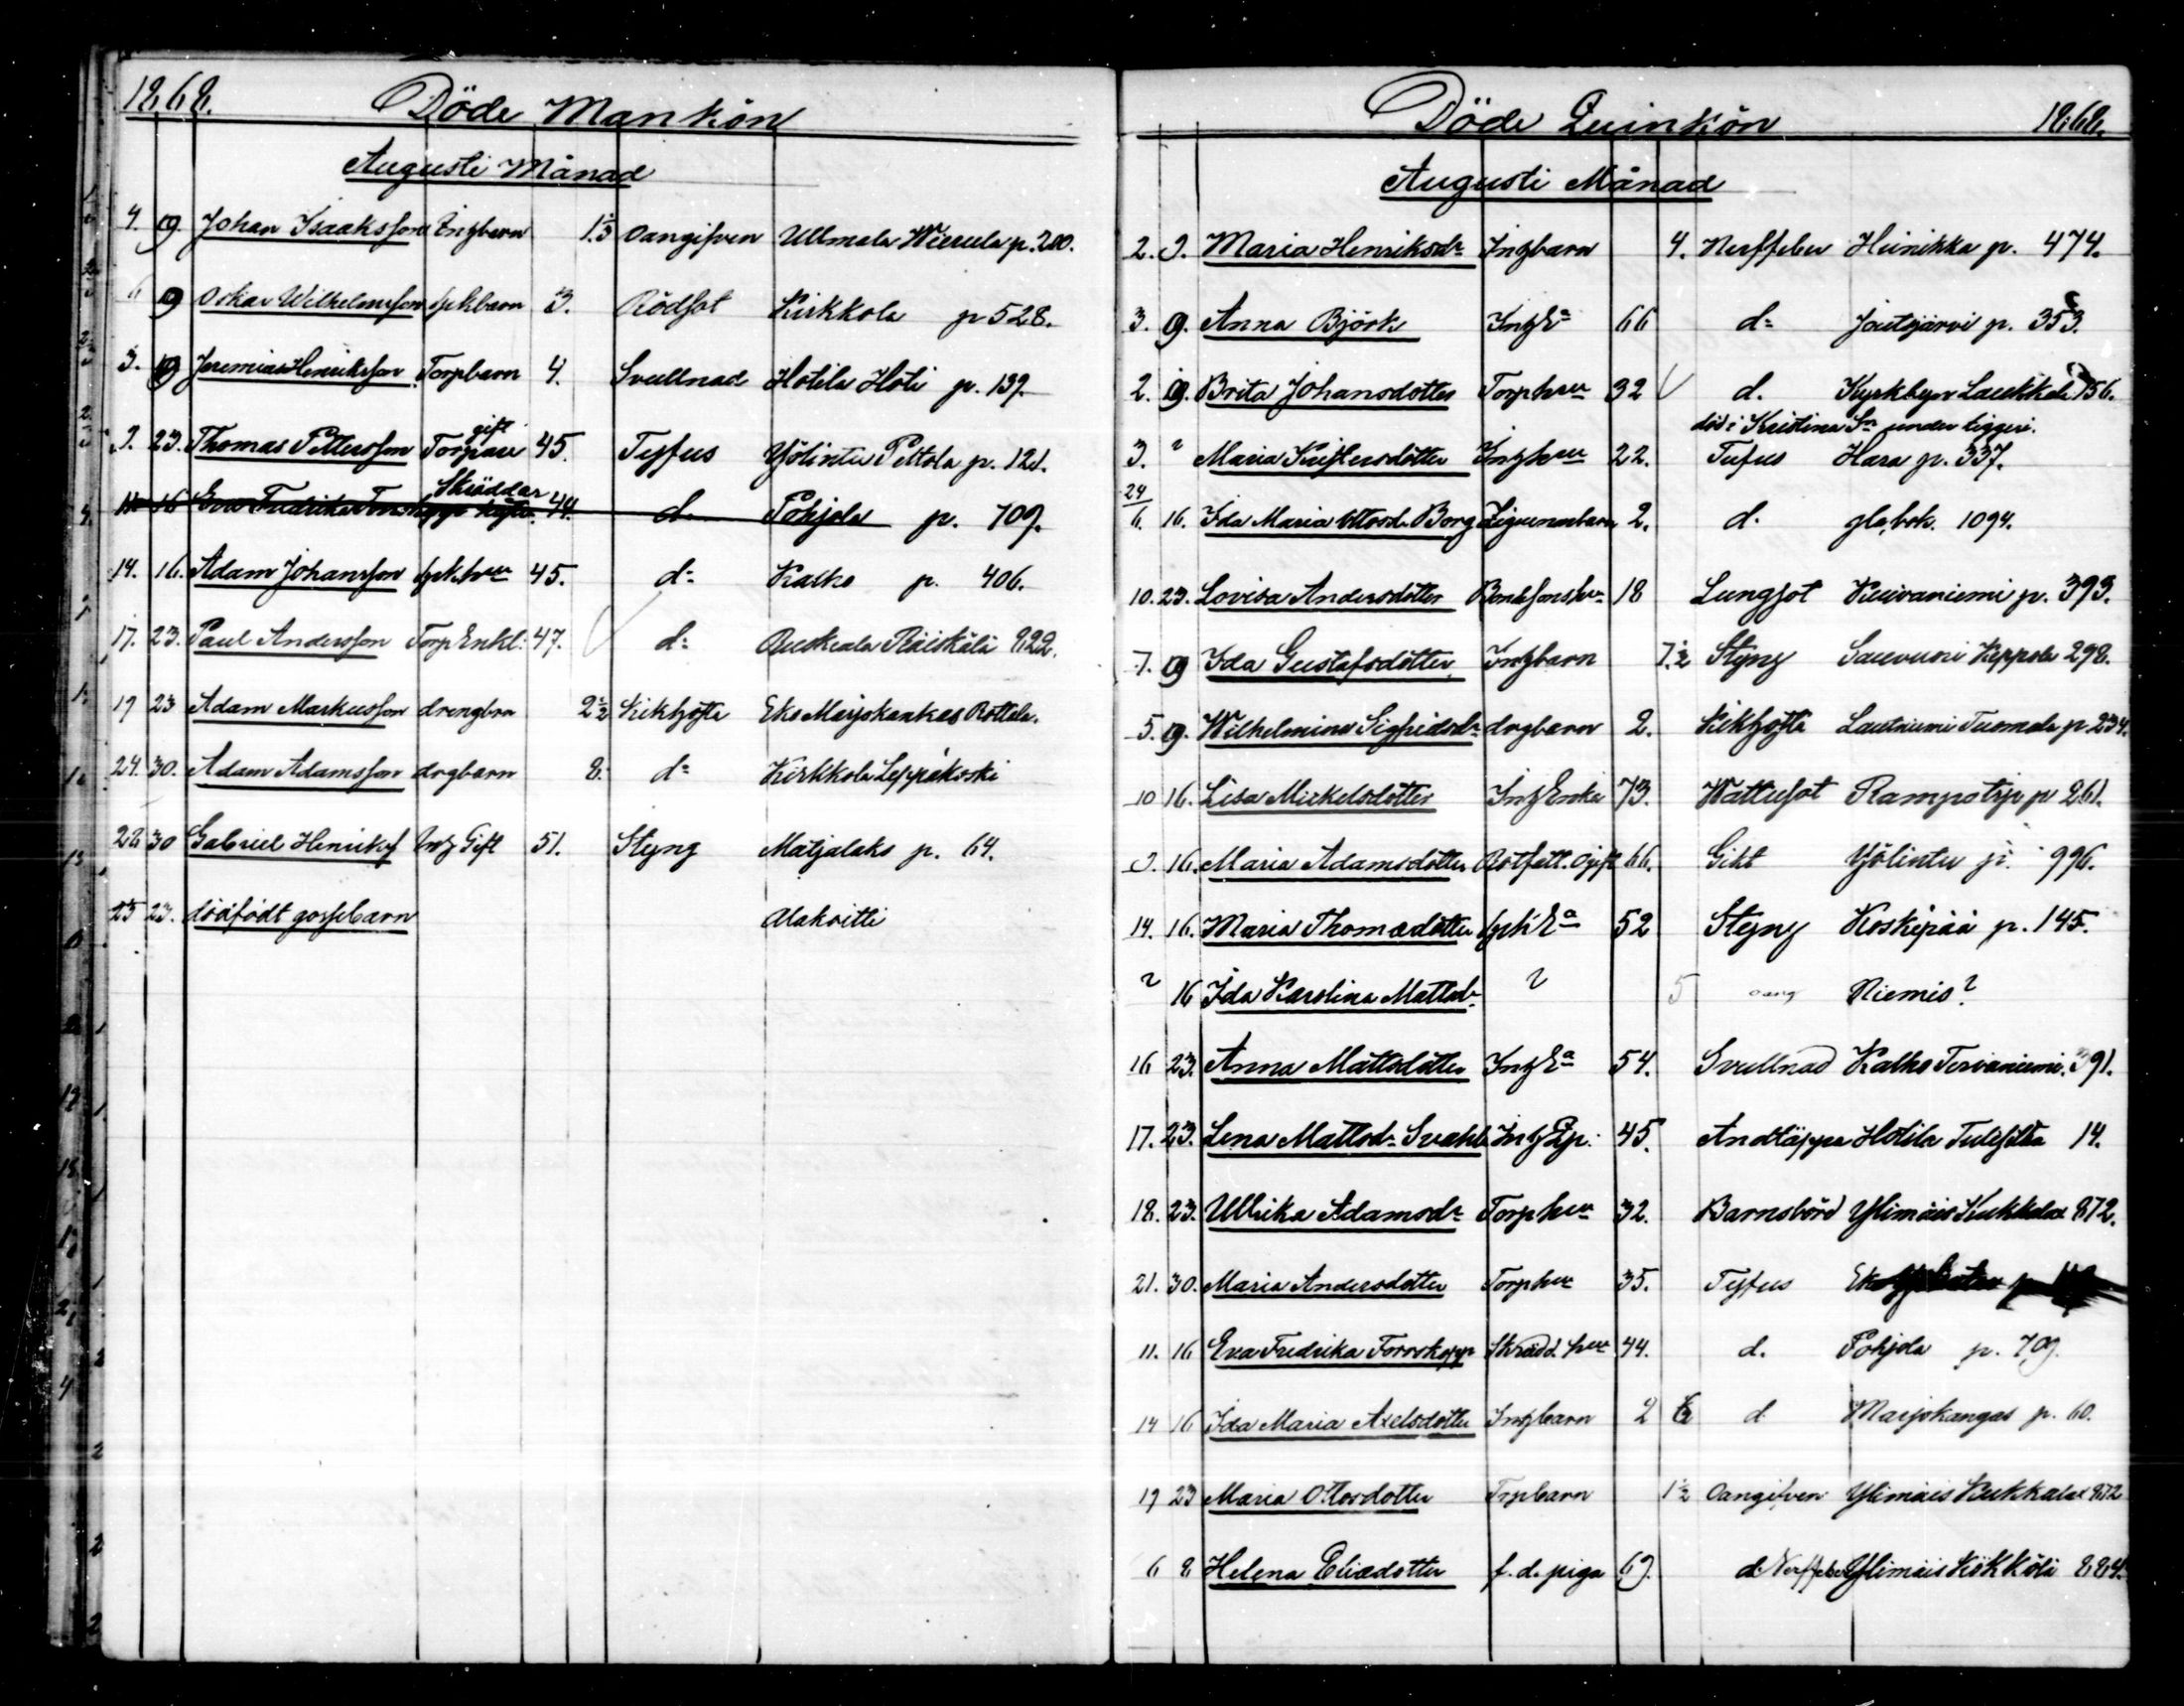 1868. Döde Mankön
Augusti Månad
4. 9. Johan Isaaksson Inhbarn 1.3 oangifven Ullmala p. 280.
6 9 Oskar Wilhelmsson spkbarn 3. Rödsot Kirkkola p 528.
3. 9 Jeremias Henriksson Torpbarn 4. Svullnad Hotila Höli p. 139.
gift
9. 23. Thomas Pettersson Torpare 45. Tyfus Yölintu Pettola p. 121.
Skräddar
11 16 Eva Fredrika 44. d. Pohjola p. 709.
14. 16. Adam Johansson 45. d:o Kalho p. 406.
17. 23. Paul Andersson Torp Enkl: 47. d:o Ruskeala Räiskälä 822.
19 23 Adam Markusson drengbrn 2 1/2 Kikhosta Eko Marjokankas Rottala.
24. 30. Adam Adamsson drgbarn 8. d:o Kirkkola Leppäkoski
28 30 Gabriel Henriksf Inh Gift 51. Styng Matjalaks p. 64.
25 23. dödfödt gossebarn Alakvitti
Döde Quinkön 1868.
Augusti Månad
2. 9. Maria Henriksdr Inhbarn 4. Nerffeber Heinikka p. 474.
3. 9. Anna Björk Inh Ea 66 d:o Joutsjärvi p. 353.
2. 9. Brita Johansdotter Torphru 32 d. Kyrkbyn Laukkala 756.
död i Kristina Sn under tiggeri.
3. " Maria Kristersdotter Inhhru 22. Tufus Hara p. 337.
24
6. 16. Ida Maria Ottosdr Borg Ziguenarbarn 2. d. gla, bok. 1094.
10. 23. Lovisa Andersdotter Bondesonshru 18 Lungsot Kuivaniemi p. 393.
7. 9 Ida Gustafsdotter Inhbarn 7.1/2 Styng Sauvuori Keppola 298.
5. 9. Wilhelmina Sigfridsdr drgbarn 2. Kikhosta Lautniemi Tuomala p 234.
10 16. Lisa Mickelsdotter Inh Enka 73. Wattusot Rampotsp p 261.
9. 16. Maria Adamsdotter Rotfatt. Ogift 66. Gikt Yölintu p. 996.
14. 16. Maria Thomædotter spk Ea 52 Styng Koskipää p. 145.
? 16 Ida Karolina Mattsdr ? 5 oang Niemis?
16 23. Anna Mattsdotter Inh Ea 54. Svullnad Kalho Tervaniemi. 391.
17. 23. Lena Mattsdr Svahl Inh 45. Andtäppa Hotila 14.
18. 23. Ullrika Adamsdr Torphru 32. Barnsbörd Ylimäis Kukkalax 872.
21. 30. Maria Andersdotter Torphru 35. Tyfus
11. 16 Eva Fredrika Forsskopp Skrädd. hru 44. d. Pohjola p. 709.
14 16 Ida Maria Axelsdotter Inhbarn 2 d Marjokangas p. 60.
19 23 Maria Ottosdotter Trpbarn 1 1/2 Oangifven Ylimäis Kukkalax 872
6 8 Helena Eliædotter f. d. piga 69. d. Nerffeber Ylimäis Kökkölä 884.